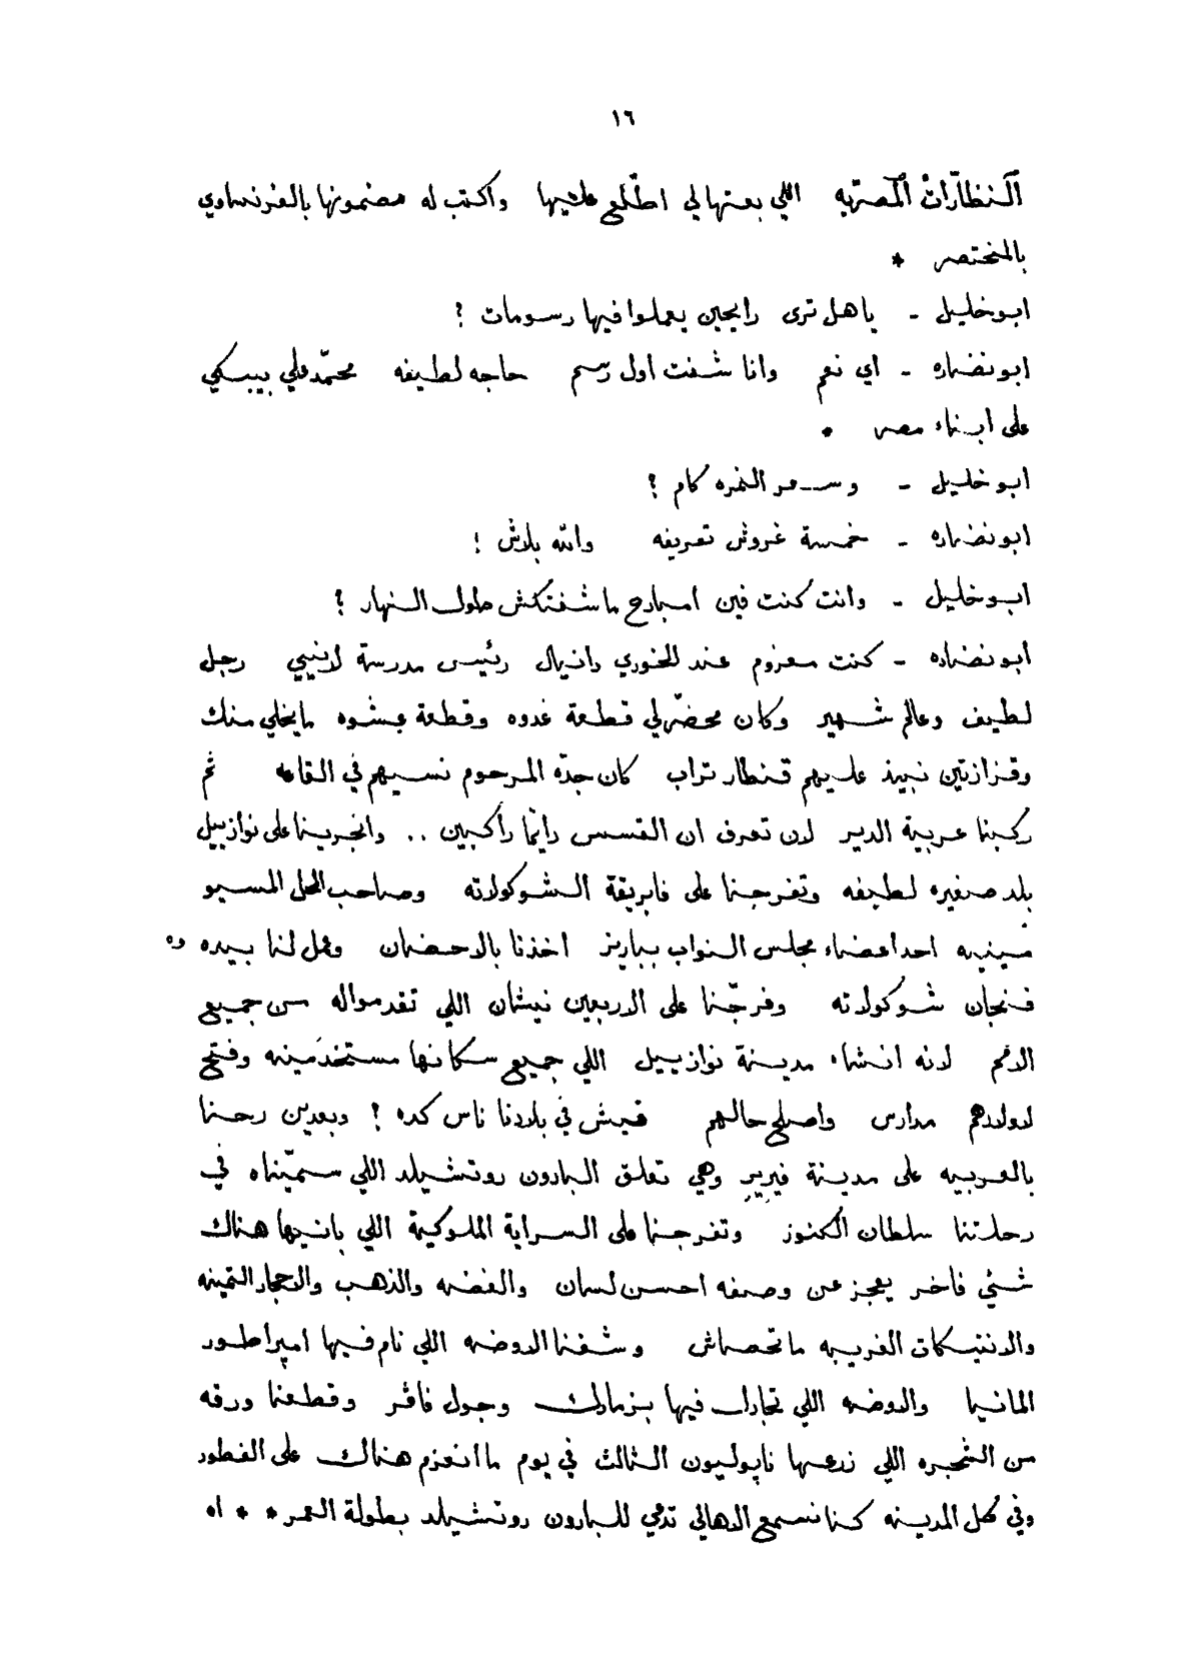 ١٦
النظّارات المصريه اللي بعتها لي اطّلع عليها واكتب له مضمونها بالفرنساوي
بالمختصر *
ابو خليل - ياهل ترى رايحين يعملوا فيها رسومات ؟
ابو نضاره - اي نعم وانا شفت اول رسم حاجه لطيفه محمّد علي بيبكي
على ابناء مصر *
ابو خليل - وسعر النمره كام ؟
ابو نضاره - خمسة غروش تعريفه والله بلاش !
ابو خليل - وانت كنت فين امبارح ما شفتكش طول النهار ؟
ابو نضاره - كنت معزوم عند الخوري دانيال رئيس مدرسة لانيي رجل
لطيف وعالم شهير وكان محضّر لي قطعة غدوه وقطعة عشوه ما يخلي منك
وقزازتين نبيذ عليهم قنطار تراب كان جدّه المرحوم نسيهم في القاعه ثم
ركبنا عربية الدير لان تعرف ان القسس دايمًا راكبين .. وانجرينا على نوازييل
بلد صغيره لطيفه وتفرجنا على فابريقة الشوكولاته وصاحب المحل المسيو
مينيه احد اعضاء مجلس النواب بباريز اخذنا بالاحضان وعمل لنا بيده
فنجان شوكولاته وفرجّنا على الاربعين نيشان اللي تقدموا له من جميع
الامم لانه انشاء مدينة نوازييل اللي جميع سكانها مستخدمينه وفتح
لاولادهم مدارس واصلح حالهم فيش في بلادنا ناس كده ؟ وبعدين رحنا
بالعربيه على مدينة فيرير وهي تعلق البارون روتشيلد اللي سمّيناه في
رحلاتنا سلطان الكنوز وتفرجنا على السراية الملوكية اللي بانيها هناك
شئي فاخر يعجز عن وصفه احسن لسان والفضه والذهب والاحجار الثمينه
والانتيكات الغريبه ما تحصاش وشفنا الاوضه اللي نام فيها امپراطور
المانيا والاوضه اللي تجادل فيها بزمارك وجول فاڤر وقطعنا ورقه
من الشجره اللي زرعها ناپوليون الثالث في يوم ما انعزم هناك على الفطور
وفي كل المدينه كنا نسمع الاهالي تدعي للبارون روتشيلد بطولة العمر * * اه